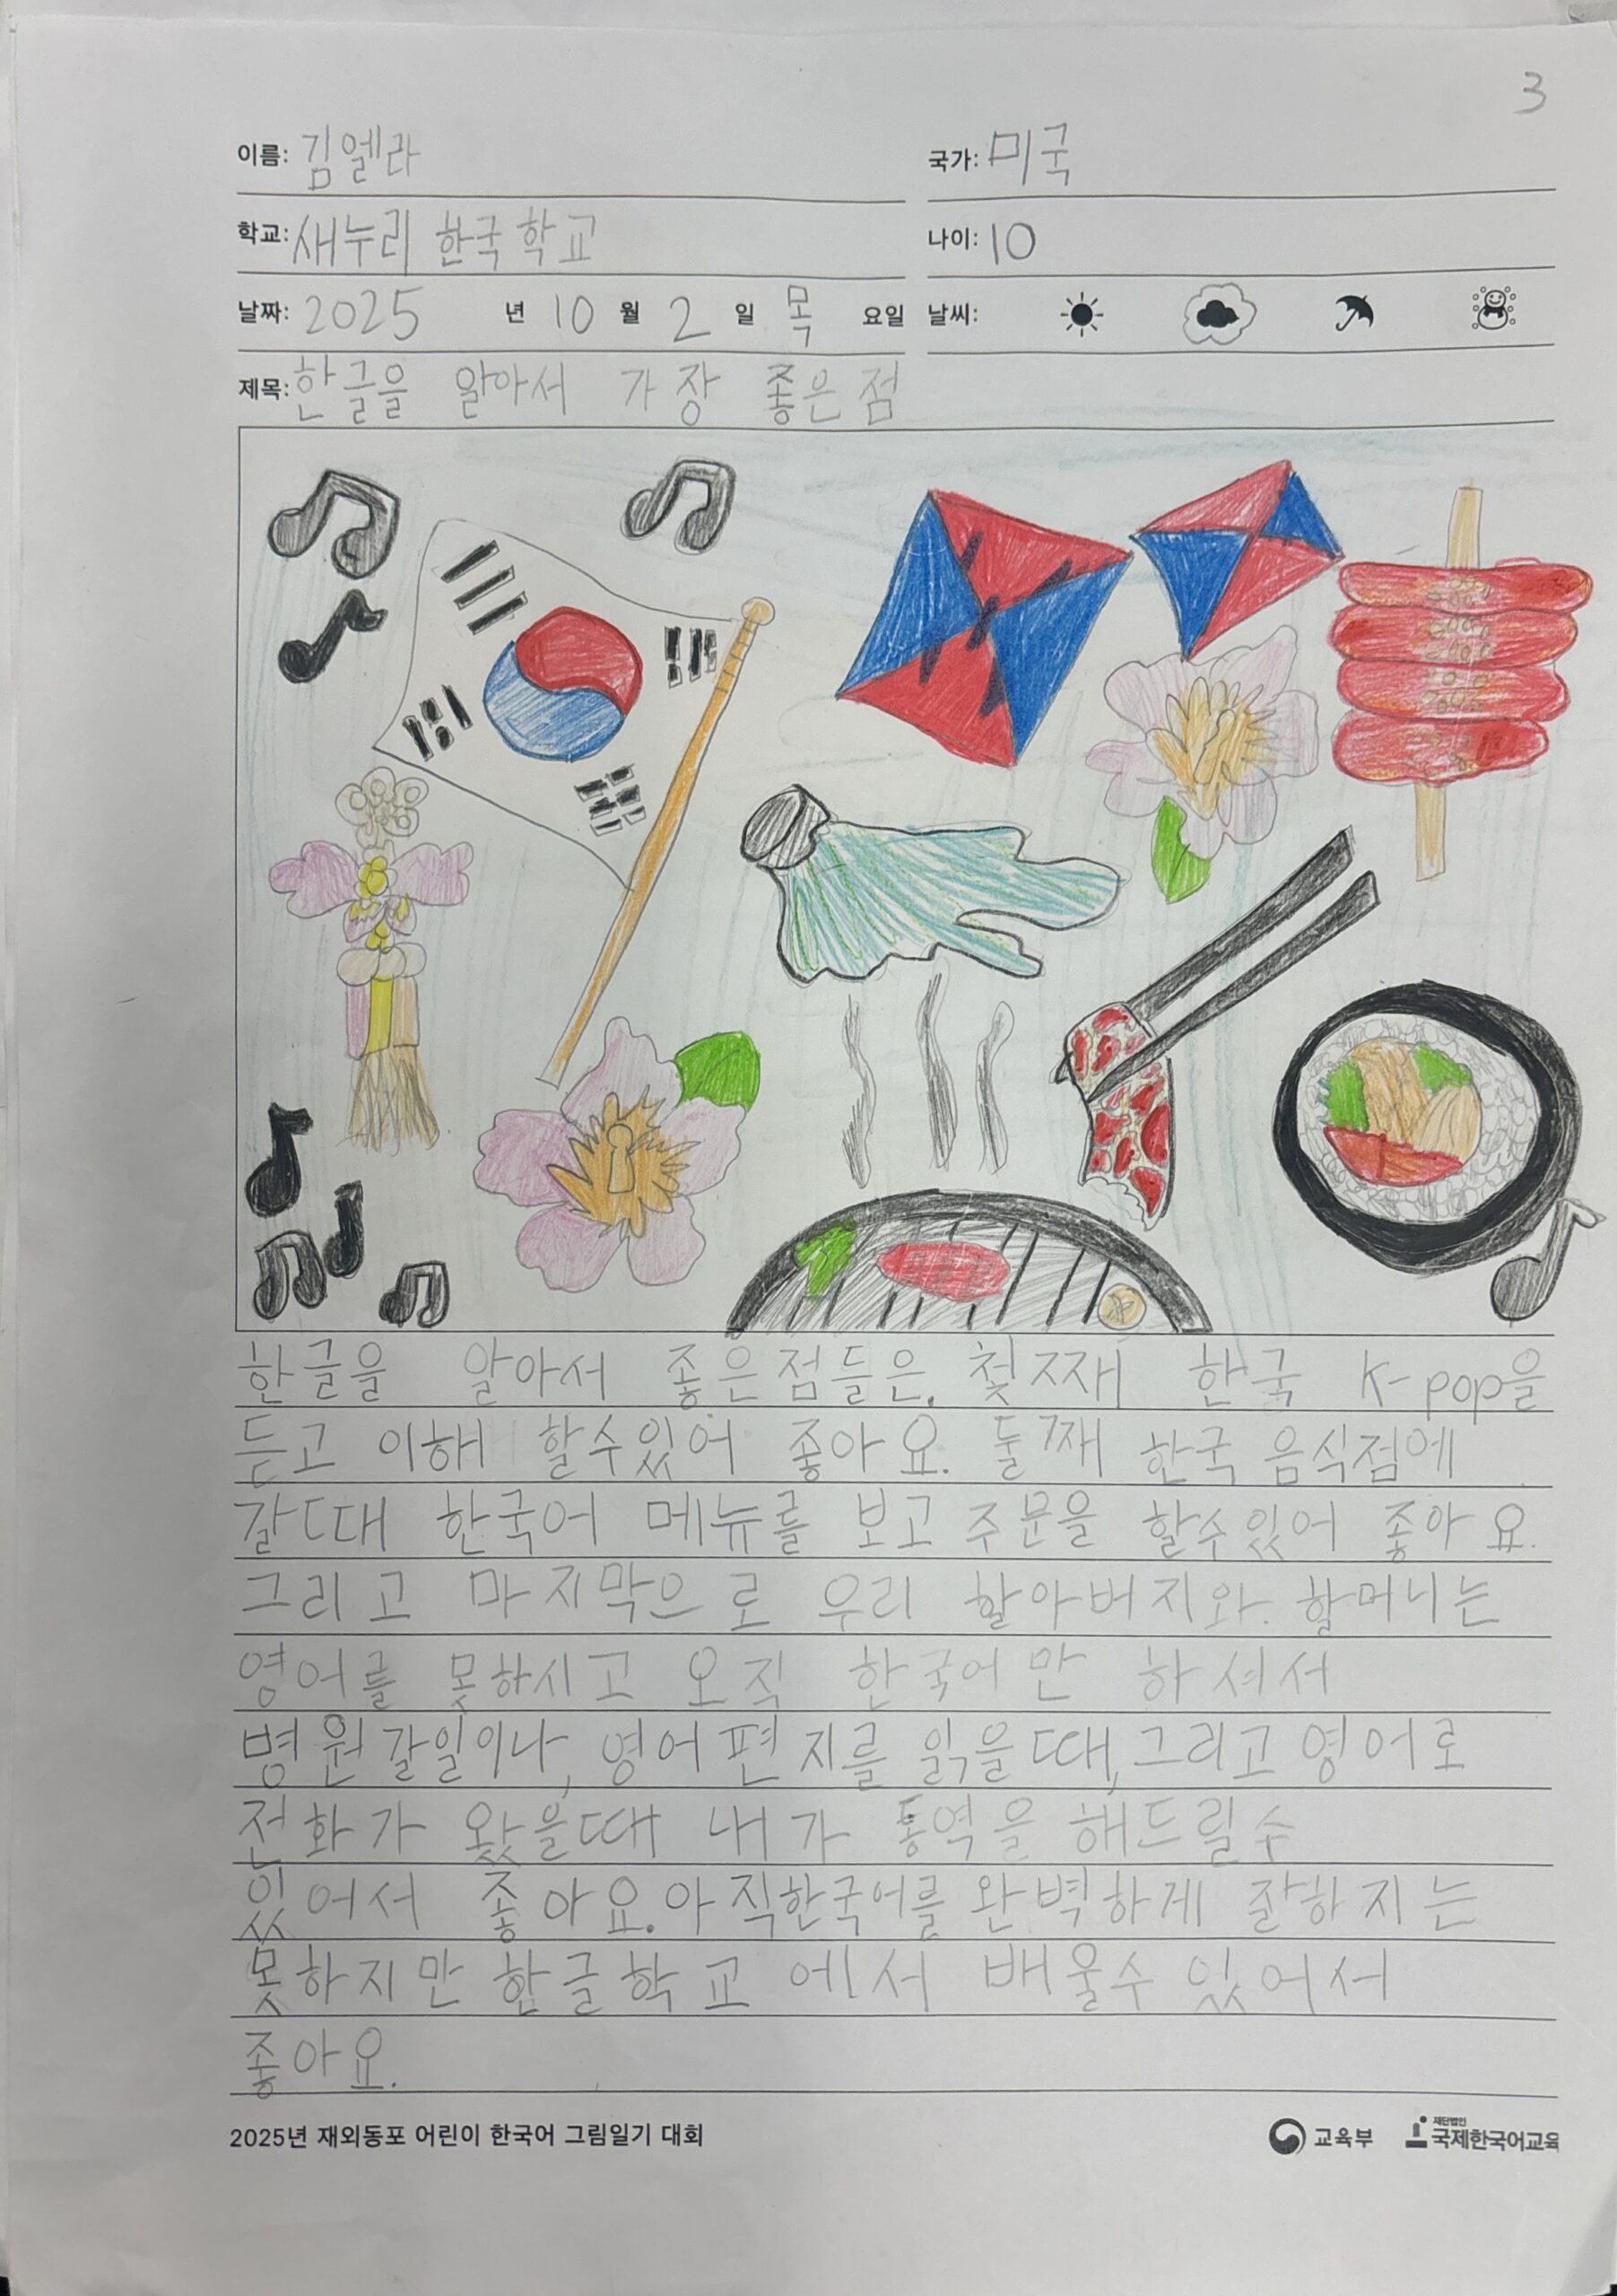 3
이름: 김엘라 국가: 미국
학교: 새누리 한국학교 나이: 10
날짜: 2025 년 10 월 2 일 목 요일 날씨:
제목: 한글을 알아서 가장 좋은점
한글을 알아서 좋은점들은. 첫째 한국 K-pop을
듣고 이해 할수있어 좋아요. 둘째 한국 음식점에
갈때 한국어 메뉴를 보고 주문을 할수있어 좋아요.
그리고 마지막으로 우리 할아버지와. 할머니는
영어를 못하시고 오직 한국어만 하셔서
병원갈일이나, 영어편지를 읽을때, 그리고 영어로
전화가 왔을때 내가 통역을 해드릴수
있어서 좋아요. 아직한국어를 완벽하게 잘하지는
못하지만 한글학교에서 배울수 있어서
좋아요.
2025년 재외동포 어린이 한국어 그림일기 대회 교육부 재단법인 국제한국어교육